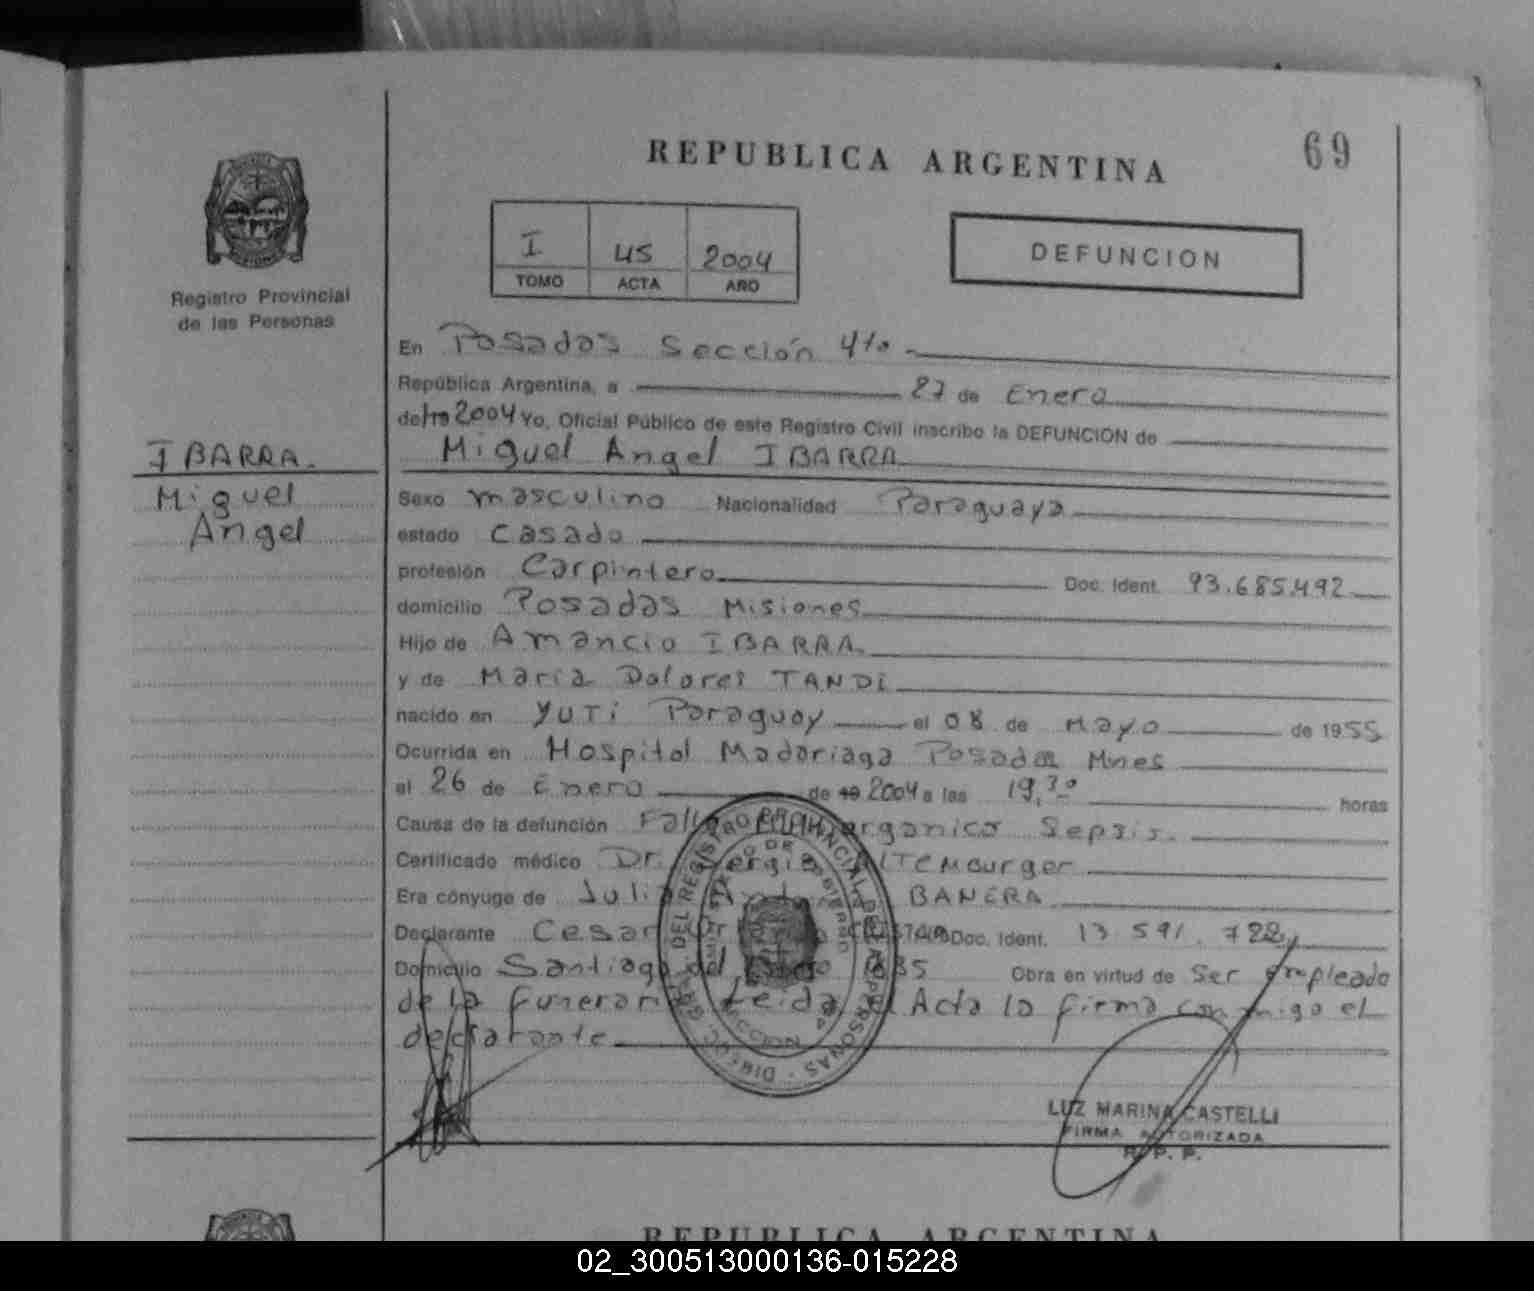 REPUBLICA ARGENTINA
69
Registro Provincial
de las Personas
I
45
2004
TOMO
ACTA
AÑO
DEFUNCION
IBARRA.
Miguel
Angel
En Posadas Sección 4ta
República Argentina, a 27 de Enero
de 19 2004 Yo, Oficial Público de este Registro Civil inscribo la DEFUNCION de
Miguel Angel IBARRA
Sexo masculino Nacionalidad Paraguaya
estado Casado
profesión Carpintero Doc. Ident. 93.685.492
domicilio Posadas Misiones
Hijo de Amancio IBARRA
y de Maria Dolores TANDI
nacido en YUTI Paraguay el 08 de Mayo de 1955
Ocurrida en Hospital Madariaga Posadas Mnes
el 26 de Enero de 19 2004 a las 19,30 horas
Causa de la defunción Falla organico Sepsis.
Certificado médico Dr.
Era cónyuge de BANERA
Declarante Cesar Doc. Ident. 13.591.722
Domicilio Santiago del Estero Obra en virtud de Ser empleado
de la funeraria Leida el Acta la firma conmigo el
declarante
DIREC. GRAL. DEL REGISTRO PROVINCIAL DE LAS PERSONAS
MINISTERIO DE GOBIERNO
SECCION 4a
LUZ MARINA CASTELLI
FIRMA AUTORIZADA
R. P. P.
REPUBLICA ARGENTINA
02_300513000136-015228